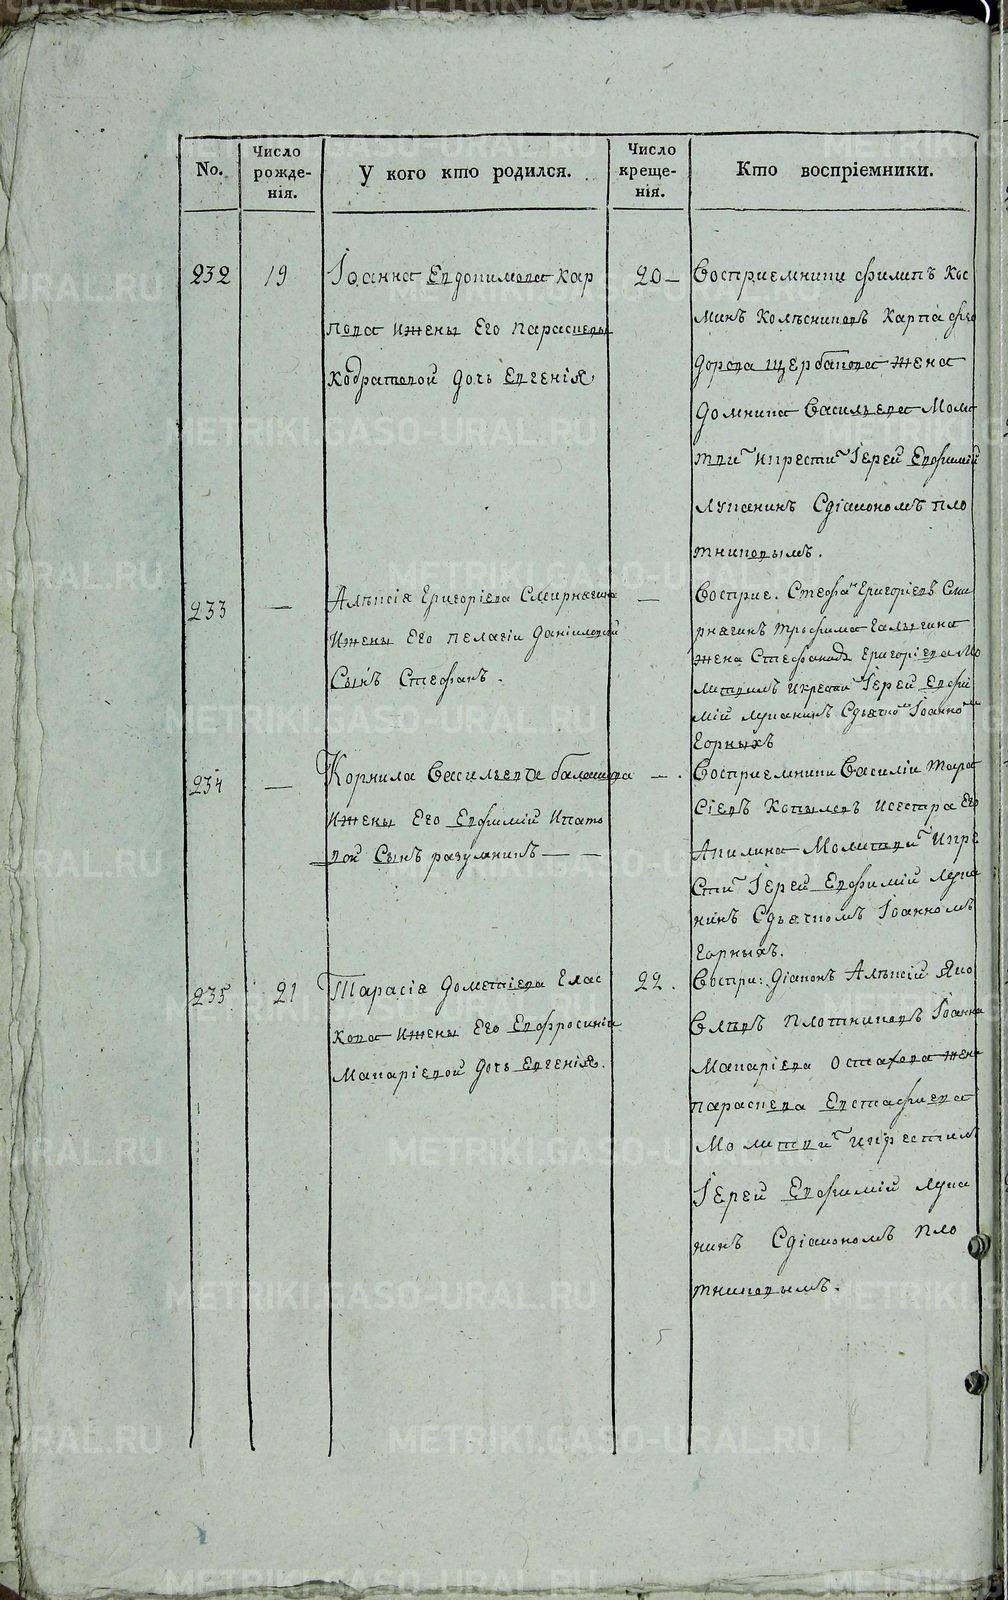 No.
Число рожде-нія.
У кого кто родился.
Число креще-нія.
Кто воспріемники.
232
19
Іоанна Евдокимова Кар
пова Ижены Его Параскевы
Кодратовой дочь Евгенія
20
Восприемники Филипъ Кос
минъ Колѣсниковъ Карпа Фео
дорова Щербакова Жена
Домника Васильева Моли
твил Икрестил Іерей Евфимій
Луканинъ Сдіакономъ Пло
тниковымъ.
233
—
Алѣксія Григоріева Смирнягина
Ижены Его Пелагіи Даніиловой
Сынъ Стефанъ.
—
Восприе. Стефан Григоріевъ Сми
рнягинъ Трофима
жена Стефанида Григоріева Мо
литвилъ Икрестил Іерей Евфи
мій Луканинъ Сдьячком Іоанном
Горныхъ
234
—
Корнила Васильевича
Ижены Его Евфимій Ипато
вой Сынъ разумникъ — —
—
Восприемники Василій Тара
сіевъ Копыловъ Исестра Его
Акилина Молитвил Икре
стил Іерей Евфимій Лука
нинъ Сдьячкомъ Іоанномъ
Горныхъ.
235
21
Тарасія Дометіева Глас
кова Ижены Его Евфросиніи
Макаріевой дочь Евгенія.
22.
Воспри: Діаконъ Алѣксій Яко
влѣвъ Плотниковъ Іоанна
Макаріева Остахова жена
Параскева Евстафиева
Молитвил Икрестилъ
Іерей Евфимій Лука
нинъ Сдіакономъ Пло
тниковымъ.
METRIKI.GASO-URAL.RU